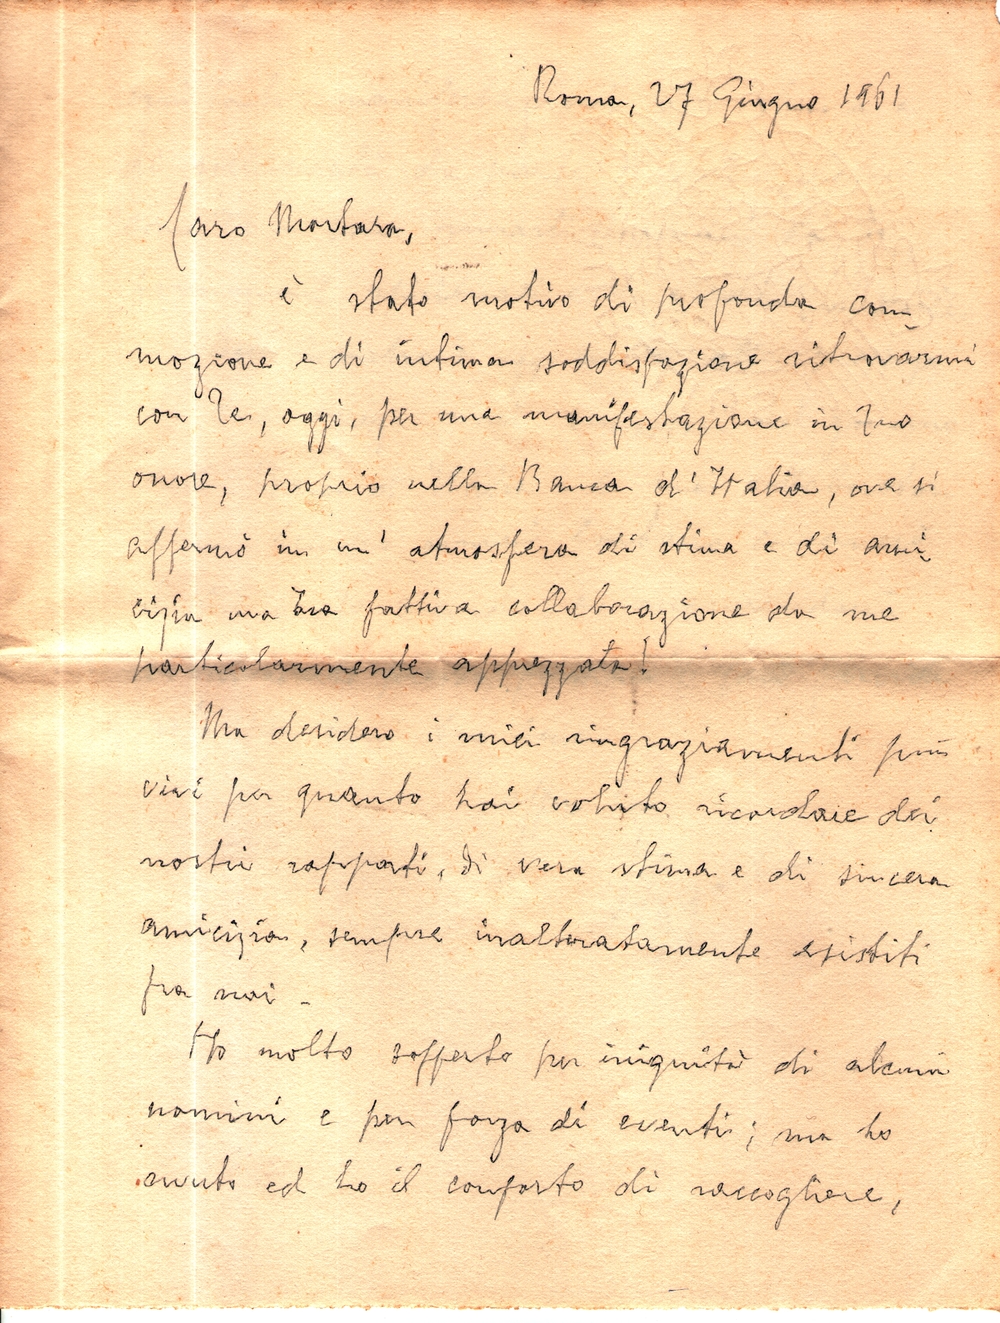 Roma, 27 Giugno 1961
Caro Mortara,
è stato motivo di profonda com-
mozione e di intima soddisfazione ritrovarmi
con Te, oggi, per una manifestazione in Tuo
onore, proprio nella Banca d'Italia, ove si
affermò in un' atmosfera di stima e di ami-
cizia una Tua fattiva collaborazione da me
particolarmente apprezzata!
Ma desidero i miei ringraziamenti più
vivi per quanto hai voluto ricordare dei
nostri rapporti, di vera stima e di sincera
amicizia, sempre inalteratamente esistiti
fra noi -
Ho molto sofferto per iniquità di alcuni
uomini e per forza di eventi; ma ho
avuto ed ho il conforto di raccogliere,